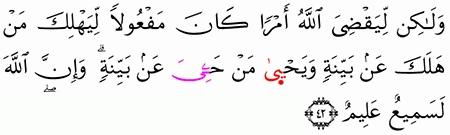 وَلَٰكِن لِّيَقْضِىَ ٱللَّهُ أَمْرًا كَانَ مَفْعُولاً لِّيَهْلِكَ مَنْ
هَلَكَ عَنۢ بَيِّنَةٍ وَيَحْيَىٰ مَنْ حَىَّ عَنۢ بَيِّنَةٍۗ وَإِنَّ ٱللَّهَ
لَسَمِيعٌ عَلِيمٌ ﴿٤٢﴾